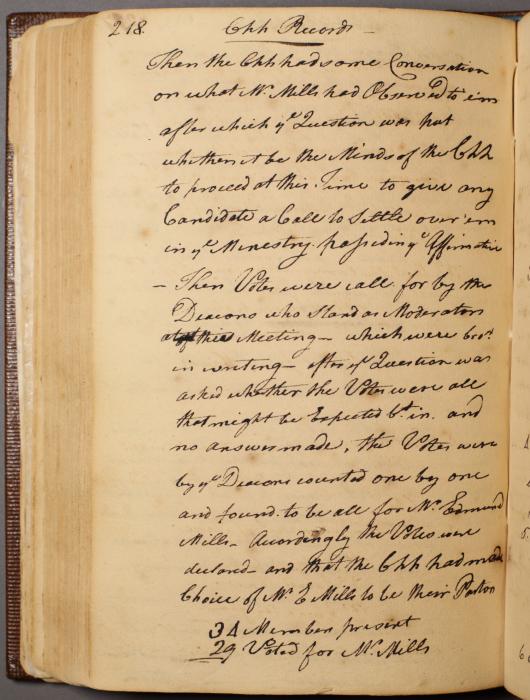 218. Chh Records -
Then the Chh had some Conversation
on what Mr. Mills had Observed to em
after which ye Question was put
whether it be the Minds of the Chh
to proceed at this Time to give any
Candidate a Call to Settle over em
in ye Ministry. passed in ye Affirmative
- Then Votes were call for by the
Deacons who stand as Moderators
of this Meeting - which were brot
in writing - after ye Question was
asked whether the Votes were all
that might be Expected bt in. and
no answer made, the Votes were
by ye Deacons counted one by one
and found to be all for Mr. Edmund
Mills - Acordingly the Votes were
declard - and that the Chh had made
Choice of Mr. E Mills to be their Pastor
34 Members present
29 Voted for Mr. Mills